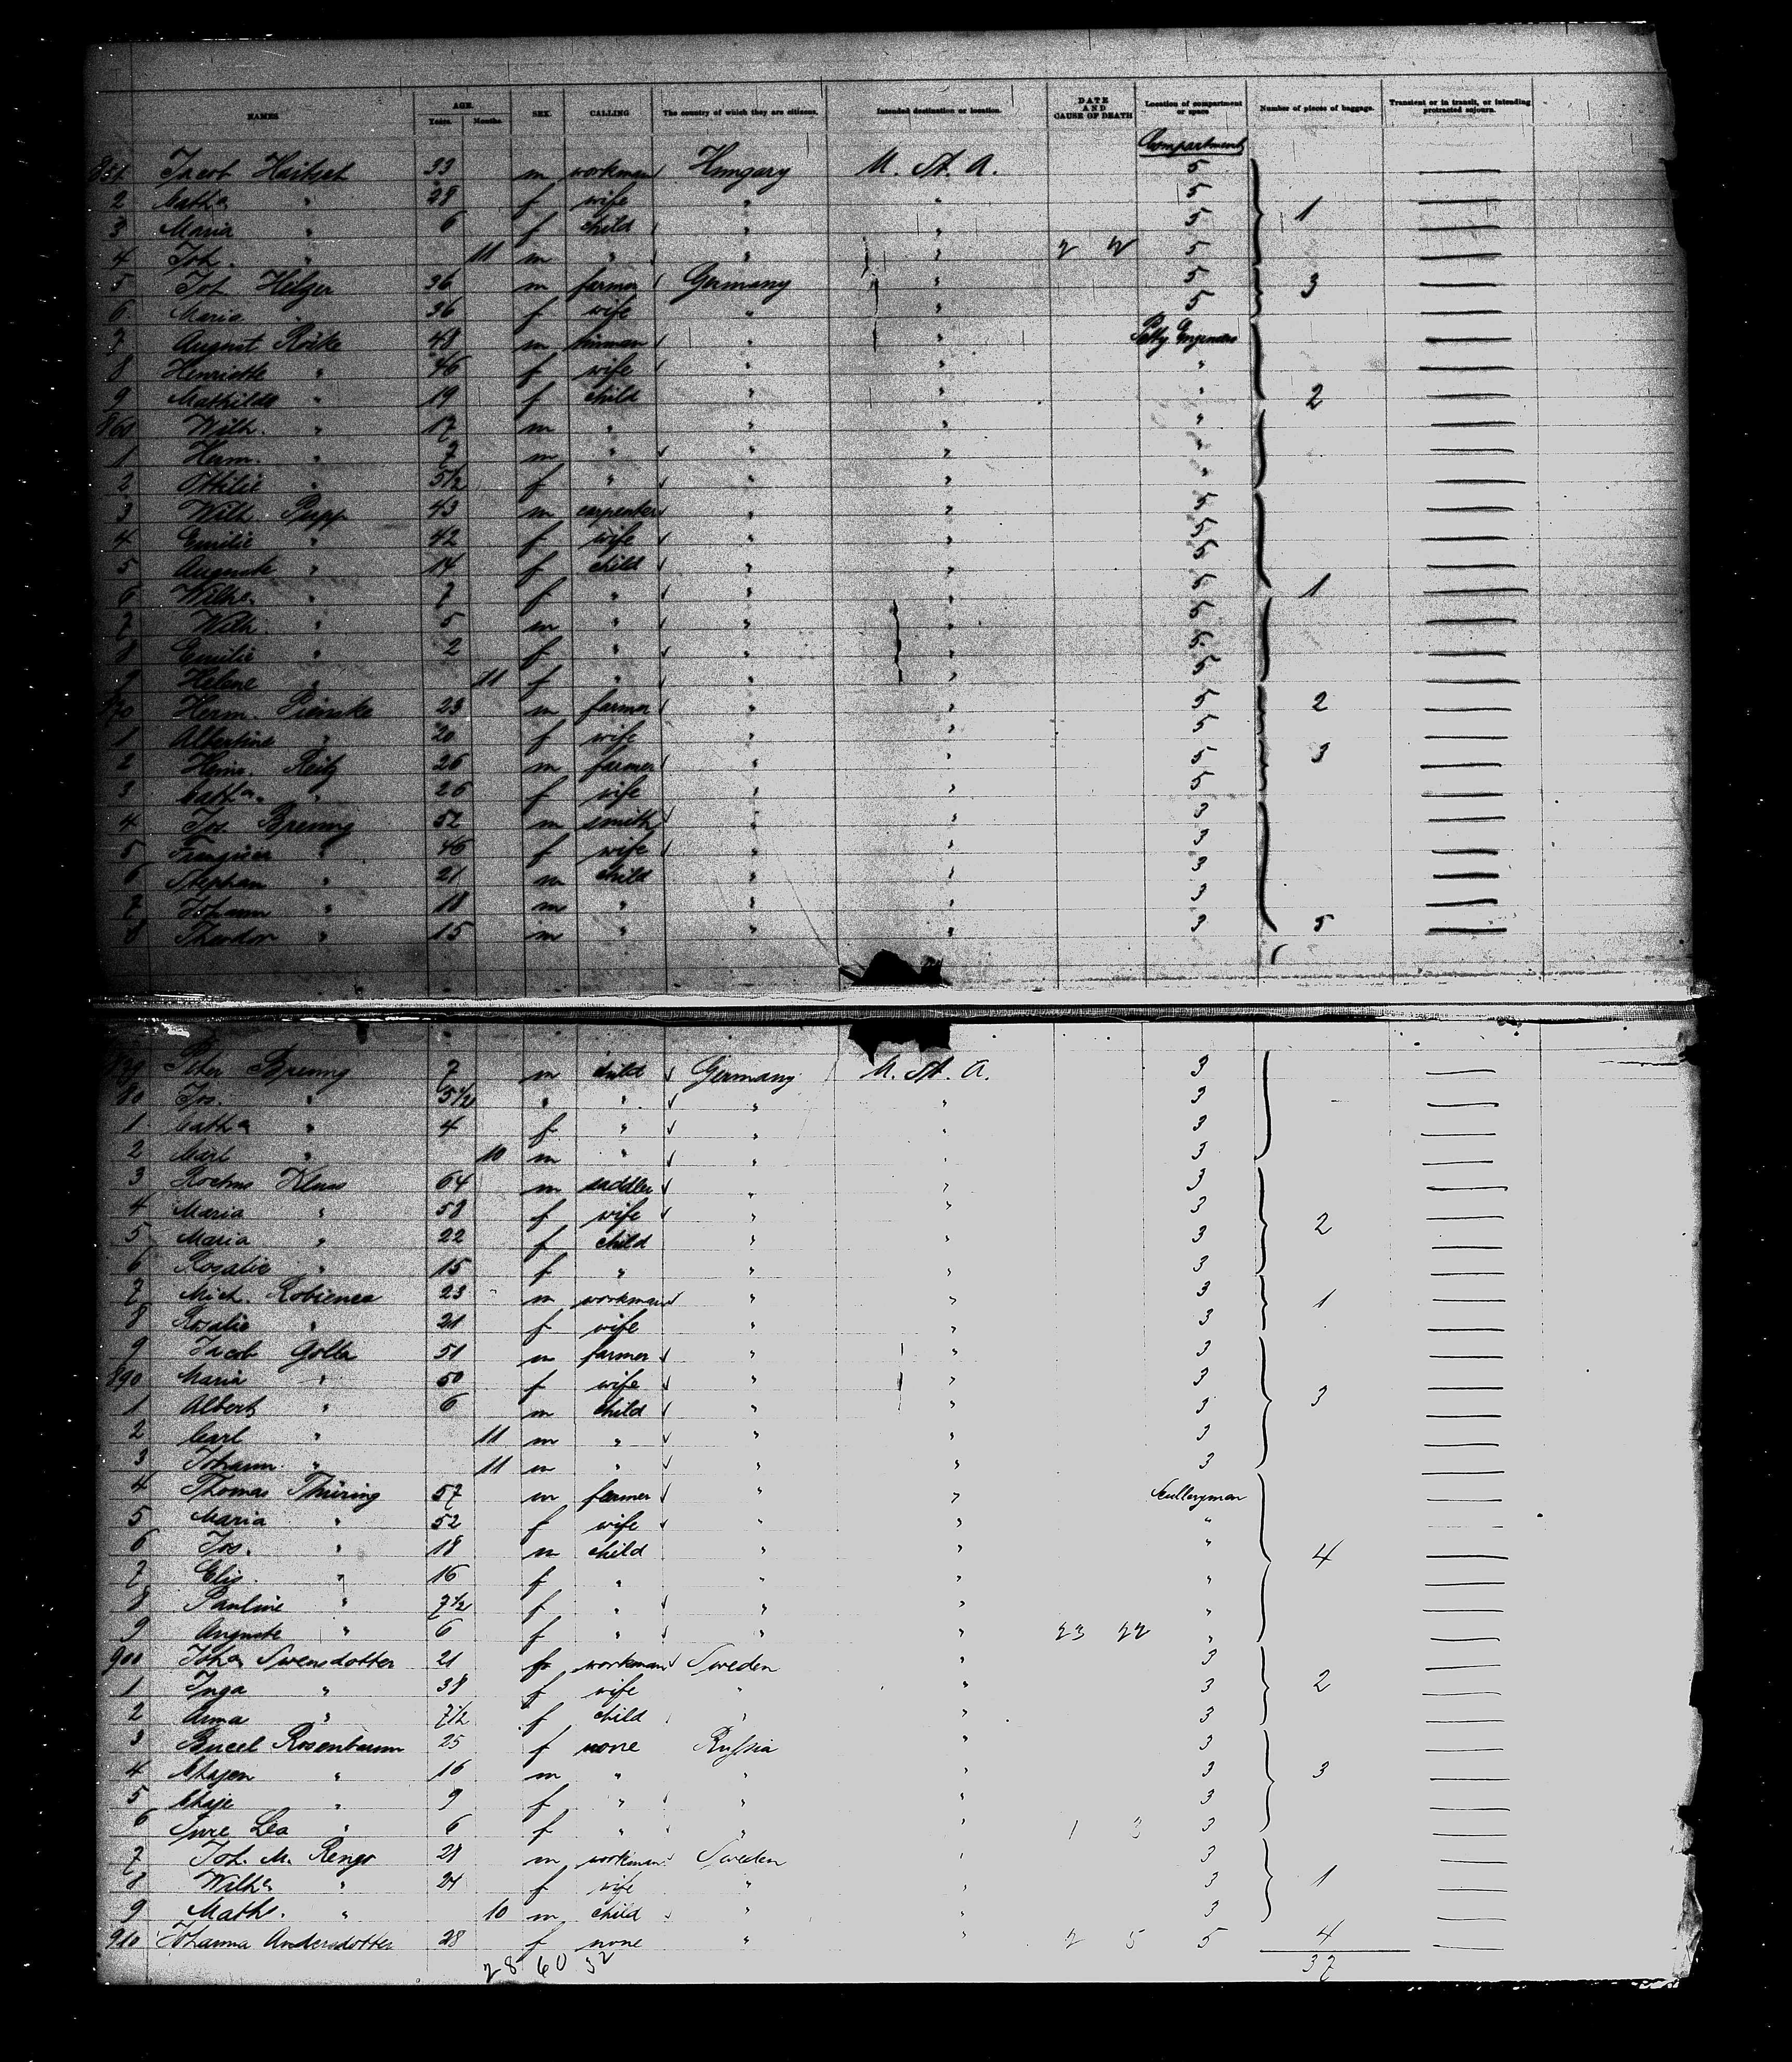 NAMES AGE. Years. Months. SEX. CALLING The country of which they are citizens. Intended destination or location. DATE AND CAUSE OF DEATH Location of compartment or space Number of pieces of baggage. Transient or in transit, or intending protracted sojourn.
Compartment
851 Jacob 33 m workman Hungary U. St. A. 5
2 Cath.a " 28 f wife " " 5 1
3 Maria " 6 f child " " 5
4 Joh. " 11 m " " " 5
5 Joh. Hilger 36 m farmer Germany " 5 3
6 Maria " 36 f wife " " 5
7 August Röske 48 m " "
8 Henriette " 46 f wife " " "
9 Mathilde " 19 f child " " " 2
860 Wilh. " 17 m " " " "
1 Herm. " 7 m " " " "
2 Ottilie " 5 1/2 f " " " "
3 Wilh. 43 m carpenter " " 5
4 Emilie " 42 f wife " " 5
5 Auguste " 14 f child " " 5
6 Wilhe. " 7 f " " " 5 1
7 Wilh. " 5 m " " " 5
8 Emilie " 2 f " " " 5
9 Helene " 11 f " " " 5
870 Herm. 23 m farmer " " 5 2
1 Albertine " 20 f wife " " 5
2 Heinr. Reitz 26 m farmer " " 5 3
3 Cath.a " 26 f wife " " 5
4 Jos. Breunig 52 m smith " " 3
5 " 46 f wife " " 3
6 Stephan " 21 m child " " 3
7 Johann " 18 m " " " 3
8 Theodor " 15 m " " " 3 5
879 Peter Breunig 7 m child Germany U. St. A. 3
80 Jos. " 5 1/2 " " " " 3
1 Cath.a " 4 f " " " 3
2 Carl " 10 m " " " 3
3 Rochus Klaus 64 m saddler " " 3
4 Maria " 58 f wife " " 3
5 Maria " 22 f child " " 3 2
6 Rosalie " 15 f " " " 3
7 Mich. 23 m workman " " 3 1
8 Rosalie " 21 f wife " " 3
9 Jacob Golla 51 m farmer " " 3
890 Maria " 50 f wife " " 3
1 Albert " 6 m child " " 3 3
2 Carl " 11 m " " " 3
3 Johann " 11 m " " " 3
4 Thomas Thüring 57 m farmer " " Sculleryman
5 Maria " 52 f wife " " "
6 Jos. " 18 m child " " " 4
7 Elis. " 16 f " " " "
8 Pauline " 7 1/2 f " " " "
9 Auguste " 6 f " " " 23 22 "
900 Joh.a Swensdotter 21 workman Sweden " 3
1 Inga " 38 f wife " " 3 2
2 Anna " 7 1/2 f child " " 3
3 Rosenbaum 25 f none Russia " 3
4 " 16 m " " " 3 3
5 Chaje " 9 f " " " 3
6 Lea " 6 f " " 1 3 3
7 Joh. M. 28 m workman Sweden " 3
8 Wilh.a " 24 f wife " " 3 1
9 Maths. " 10 m child " 3
910 Johanna Andersdotter 28 f none " " 2 5 5 4
28 60 32 37